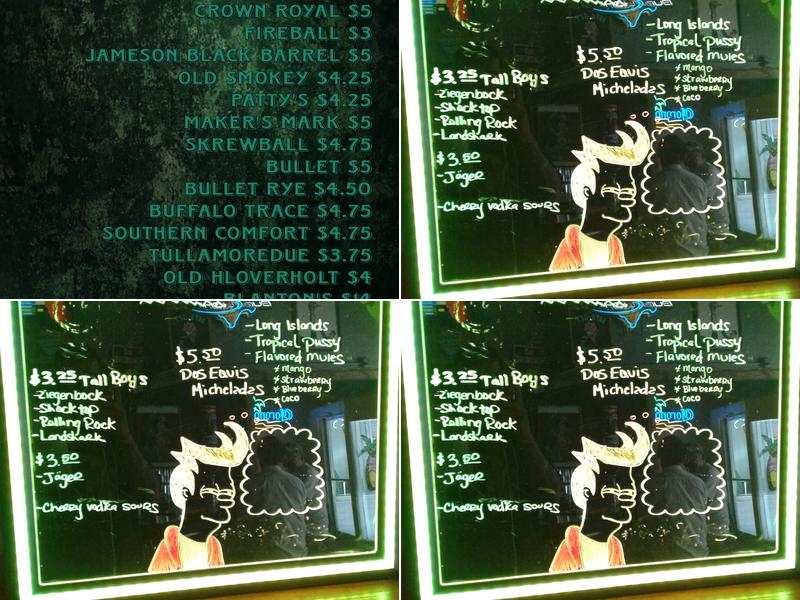 CROWN ROYAL $5
FIREBALL $3
JAMESON BLACK BARREL $5
OLD SMOKEY $4.25
PATTY'S $4.25
MAKER'S MARK $5
SKREWBALL $4.75
BULLET $5
BULLET RYE $4.50
BUFFALO TRACE $4.75
SOUTHERN COMFORT $4.75
TULLAMOREDUE $3.75
OLD HLOVERHOLT $4
BLANTON'S $14
-Long Islands
-Tropical Pussy
-Flavored mules
* mango
* Strawberry
* Blueberry
* coco
$5.50
Dos Equis
Micheladas
$3.25 Tall Boys
-Ziegenbock
-Shock top
-Rolling Rock
-Landshark
$3.50
-Jäger
-Cherry vodka sours
-Long Islands
-Tropical Pussy
-Flavored mules
* mango
* Strawberry
* Blueberry
* coco
$5.50
Dos Equis
Micheladas
$3.25 Tall Boys
-Ziegenbock
-Shock top
-Rolling Rock
-Landshark
$3.50
-Jäger
-Cherry vodka sours
-Long Islands
-Tropical Pussy
-Flavored mules
* mango
* Strawberry
* Blueberry
* coco
$5.50
Dos Equis
Micheladas
$3.25 Tall Boys
-Ziegenbock
-Shock top
-Rolling Rock
-Landshark
$3.50
-Jäger
-Cherry vodka sours